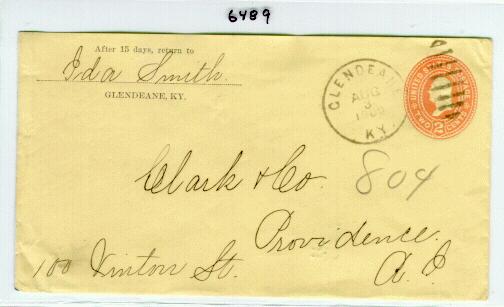 6489
After 15 days, return to
Ida Smith.
GLENDEANE, KY.
GLENDEANE
AUG
3
KY.
UNITED STATES
TWO CENTS
2
Clark & Co.
804
Providence
100 Vinton St.
R. I.